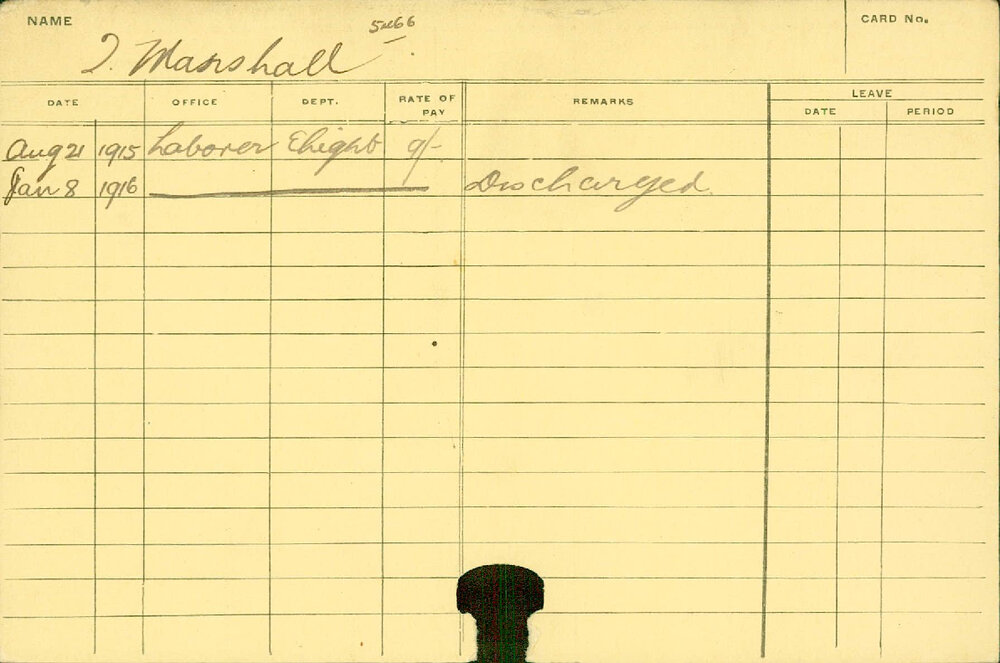 NAME
5466
CARD No.
J. Marshall
DATE OFFICE DEPT. RATE OF PAY REMARKS LEAVE
DATE PERIOD
Aug 21 1915 Laborer Elight 9/-
Jan 8 1916 Discharged